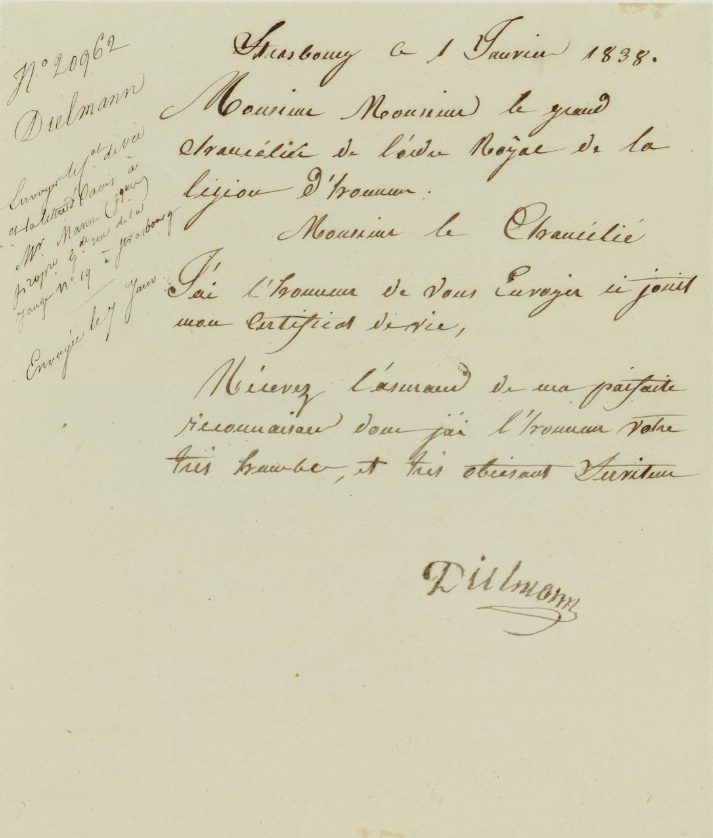 N.° 20962
Dielmann
Envoyer le f.at de vie
et la lettre d'avis à
Mr Mann
propre g.de rue de la
n° 19 à Strasbourg
Envoyée le 7 Janv
Strasbourg le 1 Janvier 1838.
Monsieur Monsieur le grand
Chancélié de l'órdre Roÿal de la
légion d'honneur.
Monsieur le Chancélié
J'ai l'honneur de vous Envoÿer ci joint
mon Certificat de vie,
Récevez l'asurance de ma párfaite
réconnaisance dont j'ai l'honneur votre
très humble, et très obiesant Serviteur
Dielmann